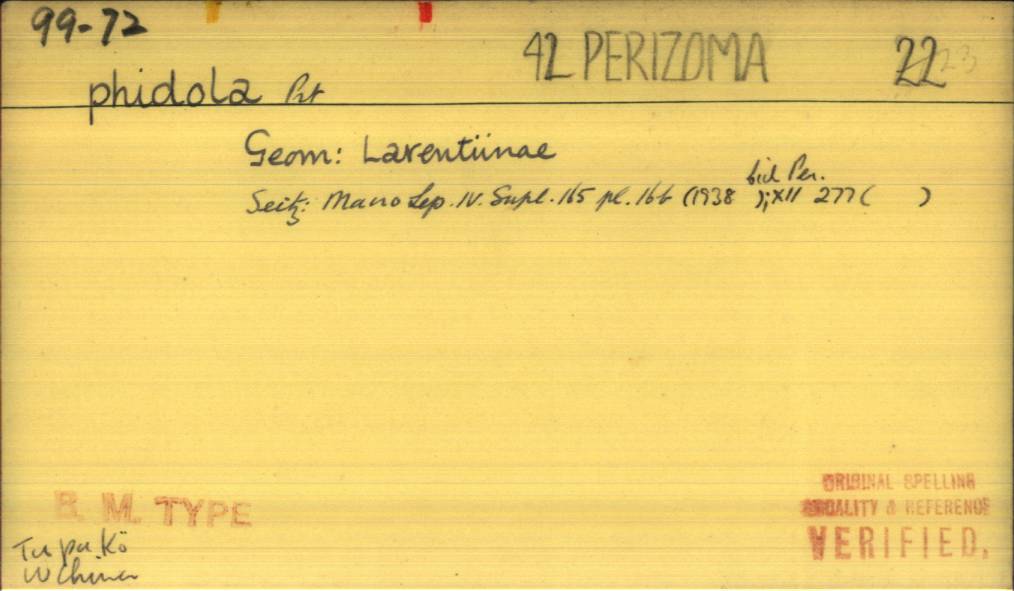 99-72
42 PERIZOMA 22 23
phidola Prt
Geom: Larentiinae
bid Per.
Seitz: Macro Lep. IV. Supl. 165 pl. 16b (1938 ); XII 277 ( )
B. M. TYPE
ORIGINAL SPELLING
LOCALITY & REFERENCE
VERIFIED.
Ta pa Kö
W China